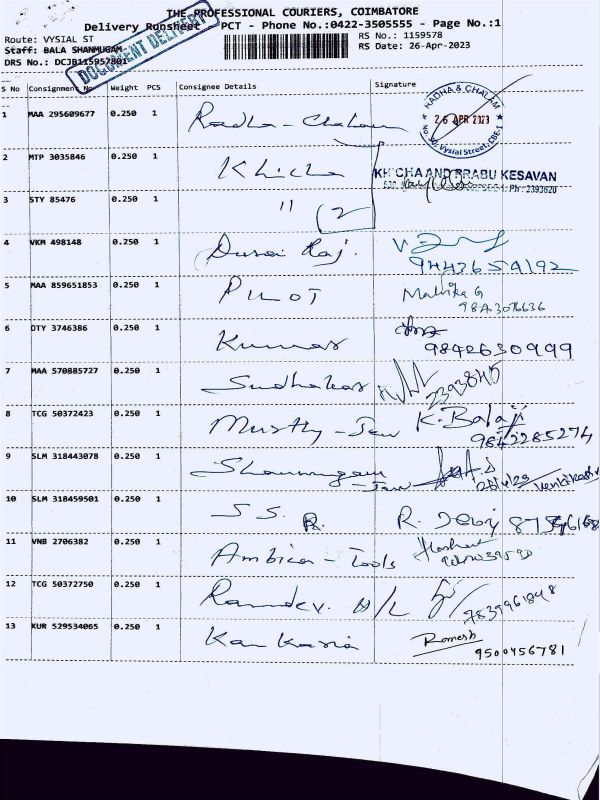 THE PROFESSIONAL COURIERS, COIMBATORE
Delivery Runsheet PCT - Phone No.:0422-3505555 - Page No.:1
Route: VYSIAL ST
RS No.: 1159578
Staff: BALA SHANMUGAM
RS Date: 26-Apr-2023
DRS No.: DCJB115957801
DOCUMENT DELIVERY
S No Consignment No Weight PCS Consignee Details Signature
1 MAA 295609677 0.250 1 Radha-Chalam
RADHA & CHALAM
26 APR 2023
Vysial Street, CBE-1
2 MTP 3035846 0.250 1 Khicha
KHICHA AND PRABU KESAVAN
Ph: 2393620
3 STY 85476 0.250 1 " 2
4 VKM 498148 0.250 1 Durai Raj.
9442659192
5 MAA 859651853 0.250 1 PILOT
Mallika G
6 DTY 3746386 0.250 1 Kumar
9842630999
7 MAA 570885727 0.250 1 Sudhakar
2393845
8 TCG 50372423 0.250 1 Murthy-Jew K.Balaji
9842285274
9 SLM 318443078 0.250 1 Shanmugam
-Jew
10 SLM 318459501 0.250 1 S S. R. R.
11 VNB 2706382 0.250 1 Ambica-Tools
12 TCG 50372750 0.250 1 Ramdev. H/L
7839961848
13 KUR 529534065 0.250 1 Kankaria Romesh
9500456781